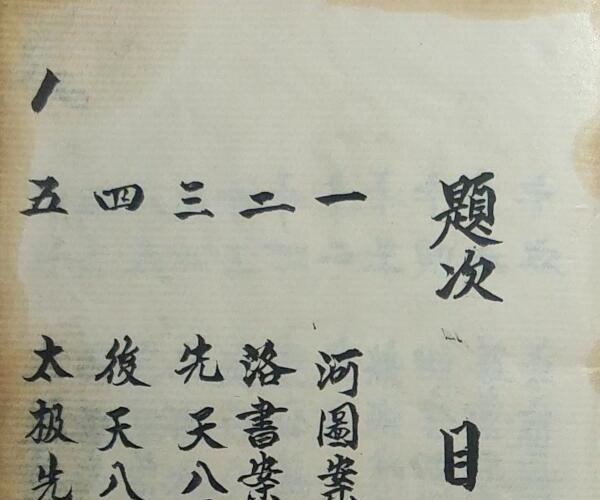 題次 目
一 河圖案
二 洛書案
三 先天八
四 後天八
五 太极先